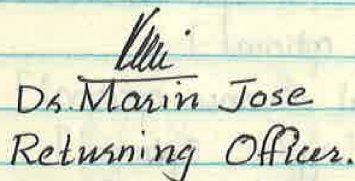 Dr. Marin Jose
Returning Officer.